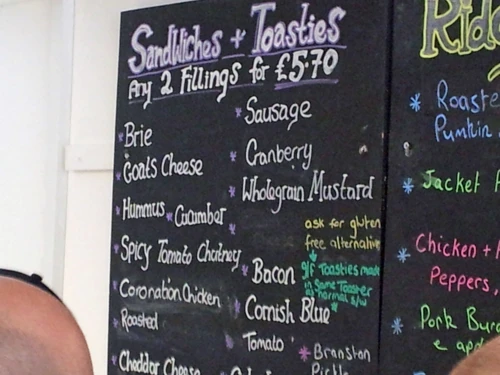 Sandwiches + Toasties
Any 2 Fillings for £5.70
Brie
Goats Cheese
Hummus
Cucumber
Spicy Tomato Chutney
Coronation Chicken
Roasted
Cheddar Cheese
Sausage
Cranberry
Wholegrain Mustard
ask for gluten
free alternative
Bacon
g/f Toasties made
in Same Toaster
as normal s/w
Cornish Blue
Tomato
Branston
Pickle
Roaste
Pumkin
Jacket
Chicken +
Peppers,
Pork Bur
e app